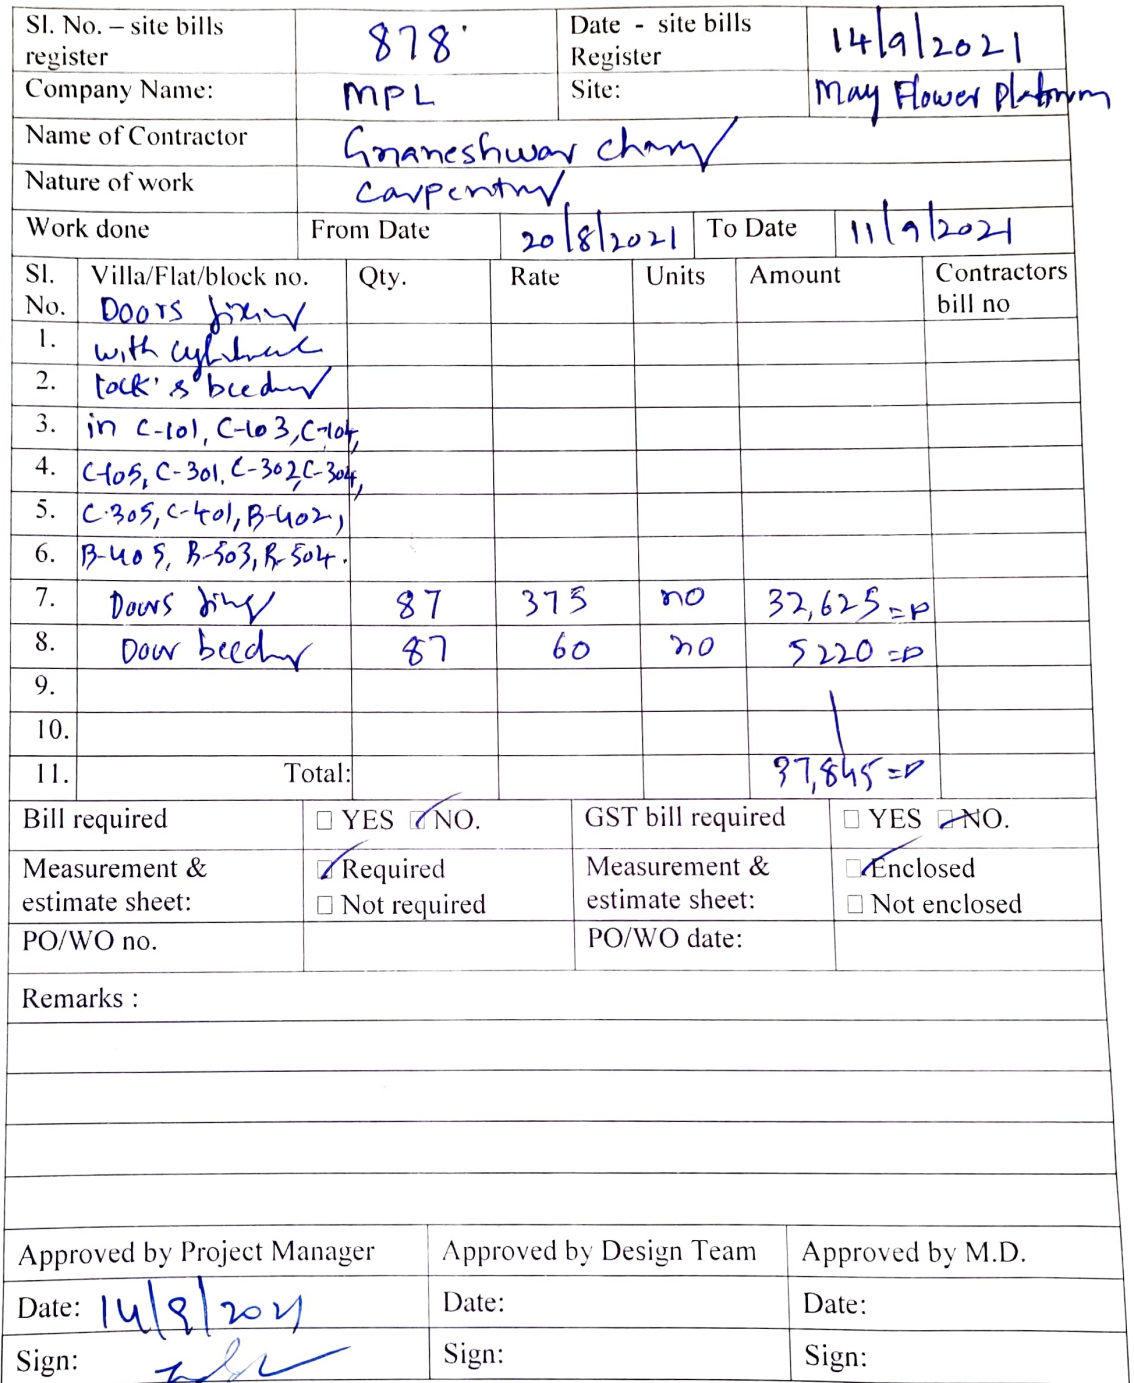 Sl. No. – site bills register 878 Date - site bills Register 14/9/2021
Company Name: MPL Site: May Flower Platinum
Name of Contractor Gnaneshwar chary
Nature of work Carpentry
Work done From Date 20/8/2021 To Date 11/9/2021
Sl. No. Villa/Flat/block no. Qty. Rate Units Amount Contractors bill no
Doors fixing
1. with cylindrical
2. lock's beeding
3. in C-101, C-103, C-104,
4. C-105, C-301, C-302, C-304,
5. C-305, C-401, B-402,
6. B-405, B-503, B-504.
7. Doors fixing 87 375 no 32,625=
8. Door beeding 87 60 no 5220=
9.
10.
11. Total: 37,845=
Bill required □ YES ☑ NO. GST bill required □ YES ☑ NO.
Measurement & estimate sheet: ☑ Required Measurement & estimate sheet: ☑ Enclosed
□ Not required □ Not enclosed
PO/WO no. PO/WO date:
Remarks :
Approved by Project Manager Approved by Design Team Approved by M.D.
Date: 14/9/2021 Date: Date:
Sign: Sign: Sign: